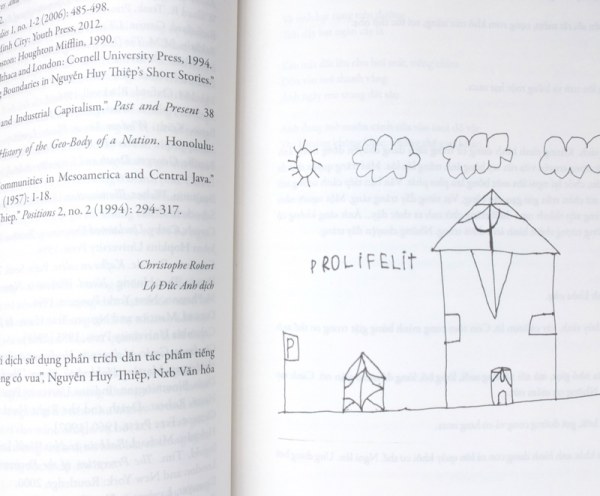 ðiên 1, no. 1-2 (2006): 485-498.
Minh City: Youth Press, 2012.
Boston: Houghton Mifflin, 1990.
Ithaca and London: Cornell University Press, 1994.
g Boundaries in Nguyễn Huy Thiệp's Short Stories."
and Industrial Capitalism." Past and Present 38
History of the Geo-Body of a Nation. Honolulu:
ommunities in Mesoamerica and Central Java."
(1957): 1-18.
hiep." Positions 2, no. 2 (1994): 294-317.
Christophe Robert
Lộ Đức Anh dịch
i dịch sử dụng phần trích dẫn tác phẩm tiếng
ng có vua", Nguyễn Huy Thiệp, Nxb Văn hóa
PROLIFELIT
P